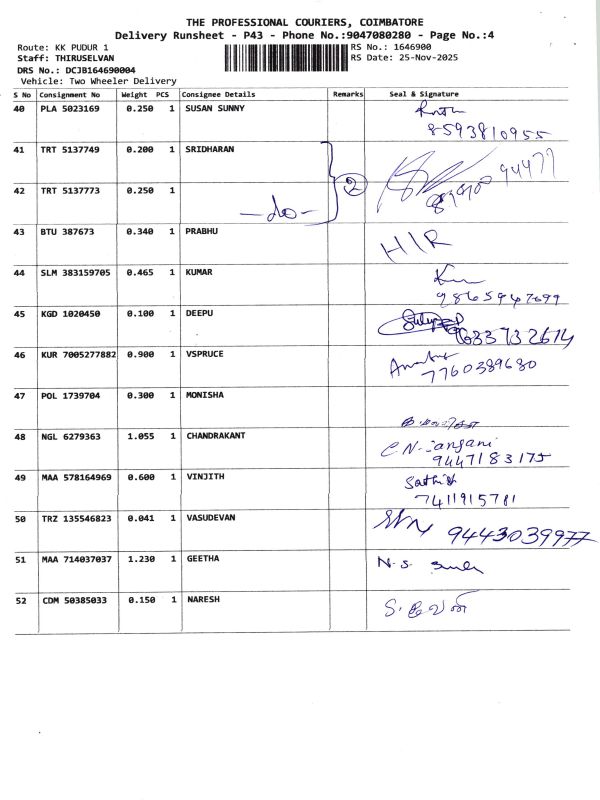 THE PROFESSIONAL COURIERS, COIMBATORE
Delivery Runsheet - P43 - Phone No.:9047080280 - Page No.:4
Route: KK PUDUR 1 RS No.: 1646900
Staff: THIRUSELVAN RS Date: 25-Nov-2025
DRS No.: DCJB164690004
Vehicle: Two Wheeler Delivery
S No Consignment No Weight PCS Consignee Details Remarks Seal & Signature
40 PLA 5023169 0.250 1 SUSAN SUNNY
8593810955
41 TRT 5137749 0.200 1 SRIDHARAN
2
42 TRT 5137773 0.250 1
-do-
43 BTU 387673 0.340 1 PRABHU H/R
44 SLM 383159705 0.465 1 KUMAR
9865947699
45 KGD 1020450 0.100 1 DEEPU
9633732614
46 KUR 7005277882 0.900 1 VSPRUCE
7760389680
47 POL 1739704 0.300 1 MONISHA
48 NGL 6279363 1.055 1 CHANDRAKANT
9447183175
49 MAA 578164969 0.600 1 VINJITH Sathish
7411915781
50 TRZ 135546823 0.041 1 VASUDEVAN
9443039977
51 MAA 714037037 1.230 1 GEETHA N.S.
52 CDM 50385033 0.150 1 NARESH